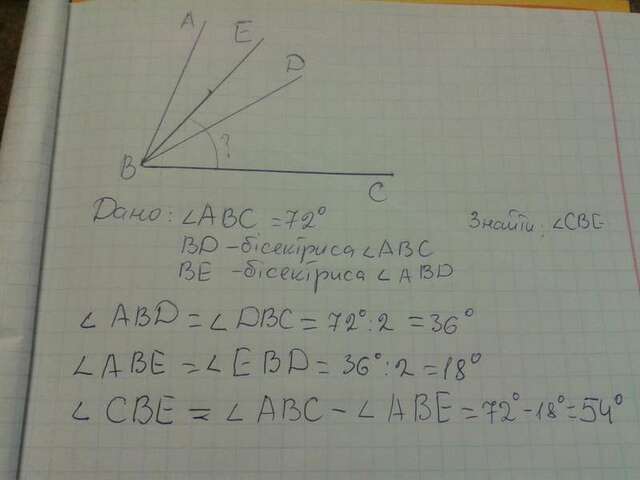 A
E
D
B
?
C
Дано: ∠ABC = 72°
Знайти: ∠CBE
BD - бісектриса ∠ABC
BE - бісектриса ∠ABD
∠ABD = ∠DBC = 72°:2 = 36°
∠ABE = ∠EBD = 36°:2 = 18°
∠CBE = ∠ABC - ∠ABE = 72° - 18° = 54°